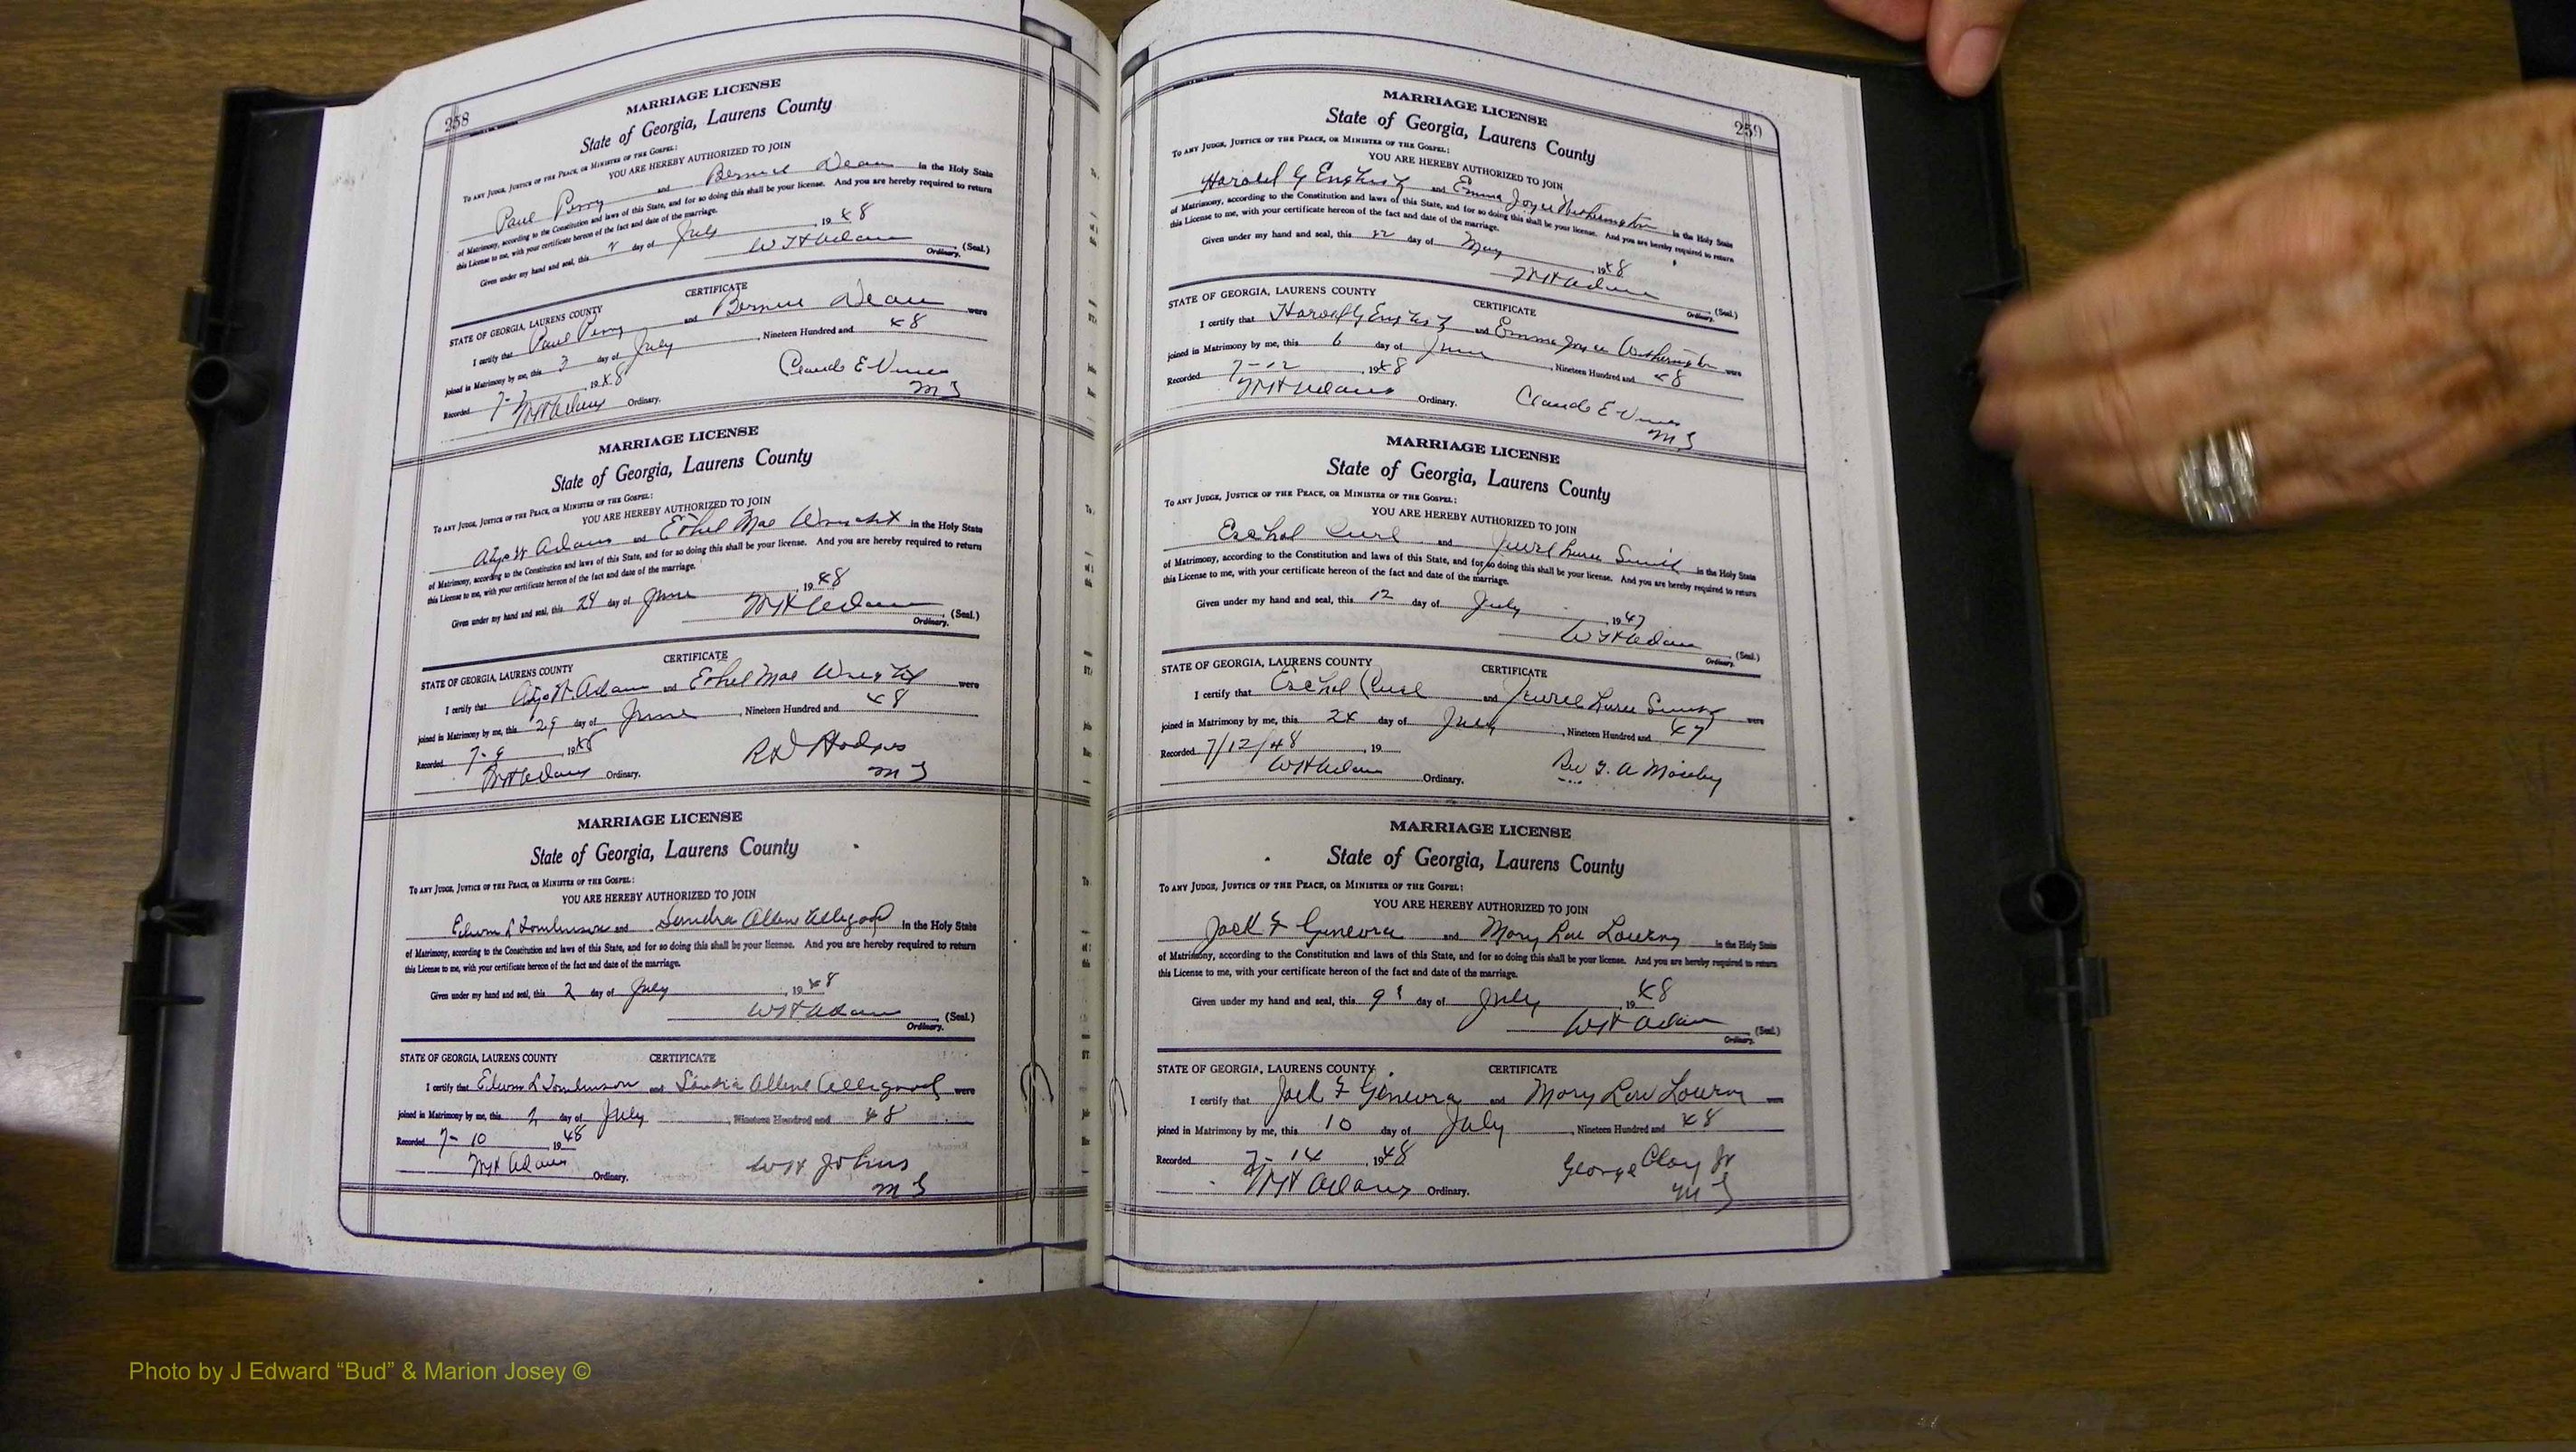 258
MARRIAGE LICENSE
State of Georgia, Laurens County
To any Judge, Justice of the Peace, or Minister of the Gospel:
YOU ARE HEREBY AUTHORIZED TO JOIN
Paul Perry and Bernice Dean in the Holy State
of Matrimony, according to the Constitution and laws of this State, and for so doing this shall be your license. And you are hereby required to return
this License to me, with your certificate hereon of the fact and date of the marriage.
Given under my hand and seal, this day of July 1948
WH Adams (Seal.)
Ordinary.
CERTIFICATE
STATE OF GEORGIA, LAURENS COUNTY
I certify that Paul Perry and Bernice Dean were
joined in Matrimony by me, this 3 day of July, Nineteen Hundred and 48
Recorded 1948
Claude E Vines
MG
WH Adams Ordinary.
MARRIAGE LICENSE
State of Georgia, Laurens County
To any Judge, Justice of the Peace, or Minister of the Gospel:
YOU ARE HEREBY AUTHORIZED TO JOIN
Adams and Ethel Mae Wright in the Holy State
of Matrimony, according to the Constitution and laws of this State, and for so doing this shall be your license. And you are hereby required to return
this License to me, with your certificate hereon of the fact and date of the marriage.
Given under my hand and seal, this 24 day of June 1948
WH Adams (Seal.)
Ordinary.
CERTIFICATE
STATE OF GEORGIA, LAURENS COUNTY
I certify that Adams and Ethel Mae Wright were
joined in Matrimony by me, this 29 day of June, Nineteen Hundred and 48
Recorded 7-9 1948
RD Hodges
MG
WH Adams Ordinary.
MARRIAGE LICENSE
State of Georgia, Laurens County
To any Judge, Justice of the Peace, or Minister of the Gospel:
YOU ARE HEREBY AUTHORIZED TO JOIN
Edwin L Tomlinson and Sandra Allene Alligood in the Holy State
of Matrimony, according to the Constitution and laws of this State, and for so doing this shall be your license. And you are hereby required to return
this License to me, with your certificate hereon of the fact and date of the marriage.
Given under my hand and seal, this 2 day of July 1948
WH Adams (Seal.)
Ordinary.
STATE OF GEORGIA, LAURENS COUNTY CERTIFICATE
I certify that Edwin L Tomlinson and Sandra Allene Alligood were
joined in Matrimony by me, this 2 day of July, Nineteen Hundred and 48
Recorded 7-10 1948
WH Adams Ordinary.
WH Johns
MG
259
MARRIAGE LICENSE
State of Georgia, Laurens County
To any Judge, Justice of the Peace, or Minister of the Gospel:
YOU ARE HEREBY AUTHORIZED TO JOIN
Harold G English and Emma Joyce Witherington in the Holy State
of Matrimony, according to the Constitution and laws of this State, and for so doing this shall be your license. And you are hereby required to return
this License to me, with your certificate hereon of the fact and date of the marriage.
Given under my hand and seal, this 22 day of May 1948
WH Adams (Seal.)
Ordinary.
STATE OF GEORGIA, LAURENS COUNTY CERTIFICATE
I certify that Harold G English and Emma Joyce Witherington were
joined in Matrimony by me, this 6 day of June, Nineteen Hundred and 48
Recorded 7-12 1948
WH Adams Ordinary.
Claude E Vines
MG
MARRIAGE LICENSE
State of Georgia, Laurens County
To any Judge, Justice of the Peace, or Minister of the Gospel:
YOU ARE HEREBY AUTHORIZED TO JOIN
Eschol Curl and Smith in the Holy State
of Matrimony, according to the Constitution and laws of this State, and for so doing this shall be your license. And you are hereby required to return
this License to me, with your certificate hereon of the fact and date of the marriage.
Given under my hand and seal, this 12 day of July 1947
WH Adams (Seal.)
Ordinary.
STATE OF GEORGIA, LAURENS COUNTY CERTIFICATE
I certify that Eschol Curl and Smith were
joined in Matrimony by me, this 24 day of July, Nineteen Hundred and 47
Recorded 7/12/48, 19
WH Adams Ordinary.
Rev Mosley
MARRIAGE LICENSE
State of Georgia, Laurens County
To any Judge, Justice of the Peace, or Minister of the Gospel:
YOU ARE HEREBY AUTHORIZED TO JOIN
Jack F Ginevra and Mary Lou Lowery in the Holy State
of Matrimony, according to the Constitution and laws of this State, and for so doing this shall be your license. And you are hereby required to return
this License to me, with your certificate hereon of the fact and date of the marriage.
Given under my hand and seal, this 9 day of July 1948
WH Adams (Seal.)
Ordinary.
STATE OF GEORGIA, LAURENS COUNTY CERTIFICATE
I certify that Jack F Ginevra and Mary Lou Lowery were
joined in Matrimony by me, this 10 day of July, Nineteen Hundred and 48
Recorded 7-14, 1948
WH Adams Ordinary.
George Clay Jr
MG
Photo by J Edward “Bud” & Marion Josey ©